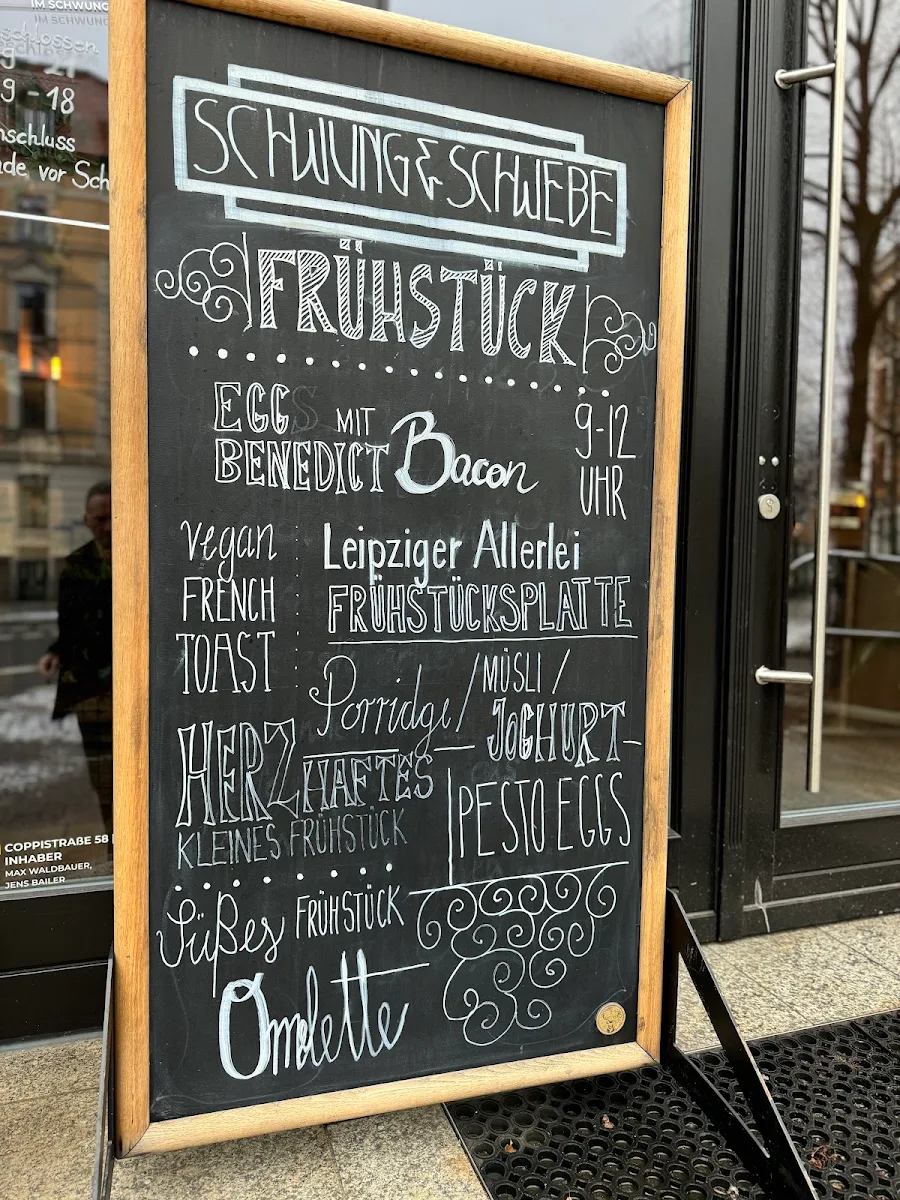 IM SCHWUNG
IM SCHWUNG
9 - 18
ade vor Sch
SCHWUNG & SCHWEBE
FRÜHSTÜCK
EGGS MIT
BENEDICT Bacon
9-12
UHR
vegan
FRENCH
TOAST
Leipziger Allerlei
FRÜHSTÜCKSPLATTE
Porridge / MÜSLI /
JOGHURT
HERZHAFTES
KLEINES FRÜHSTÜCK
PESTO EGGS
Süßes FRÜHSTÜCK
Omelette
COPPISTRAßE 58
INHABER
MAX WALDBAUER,
JENS BAILER